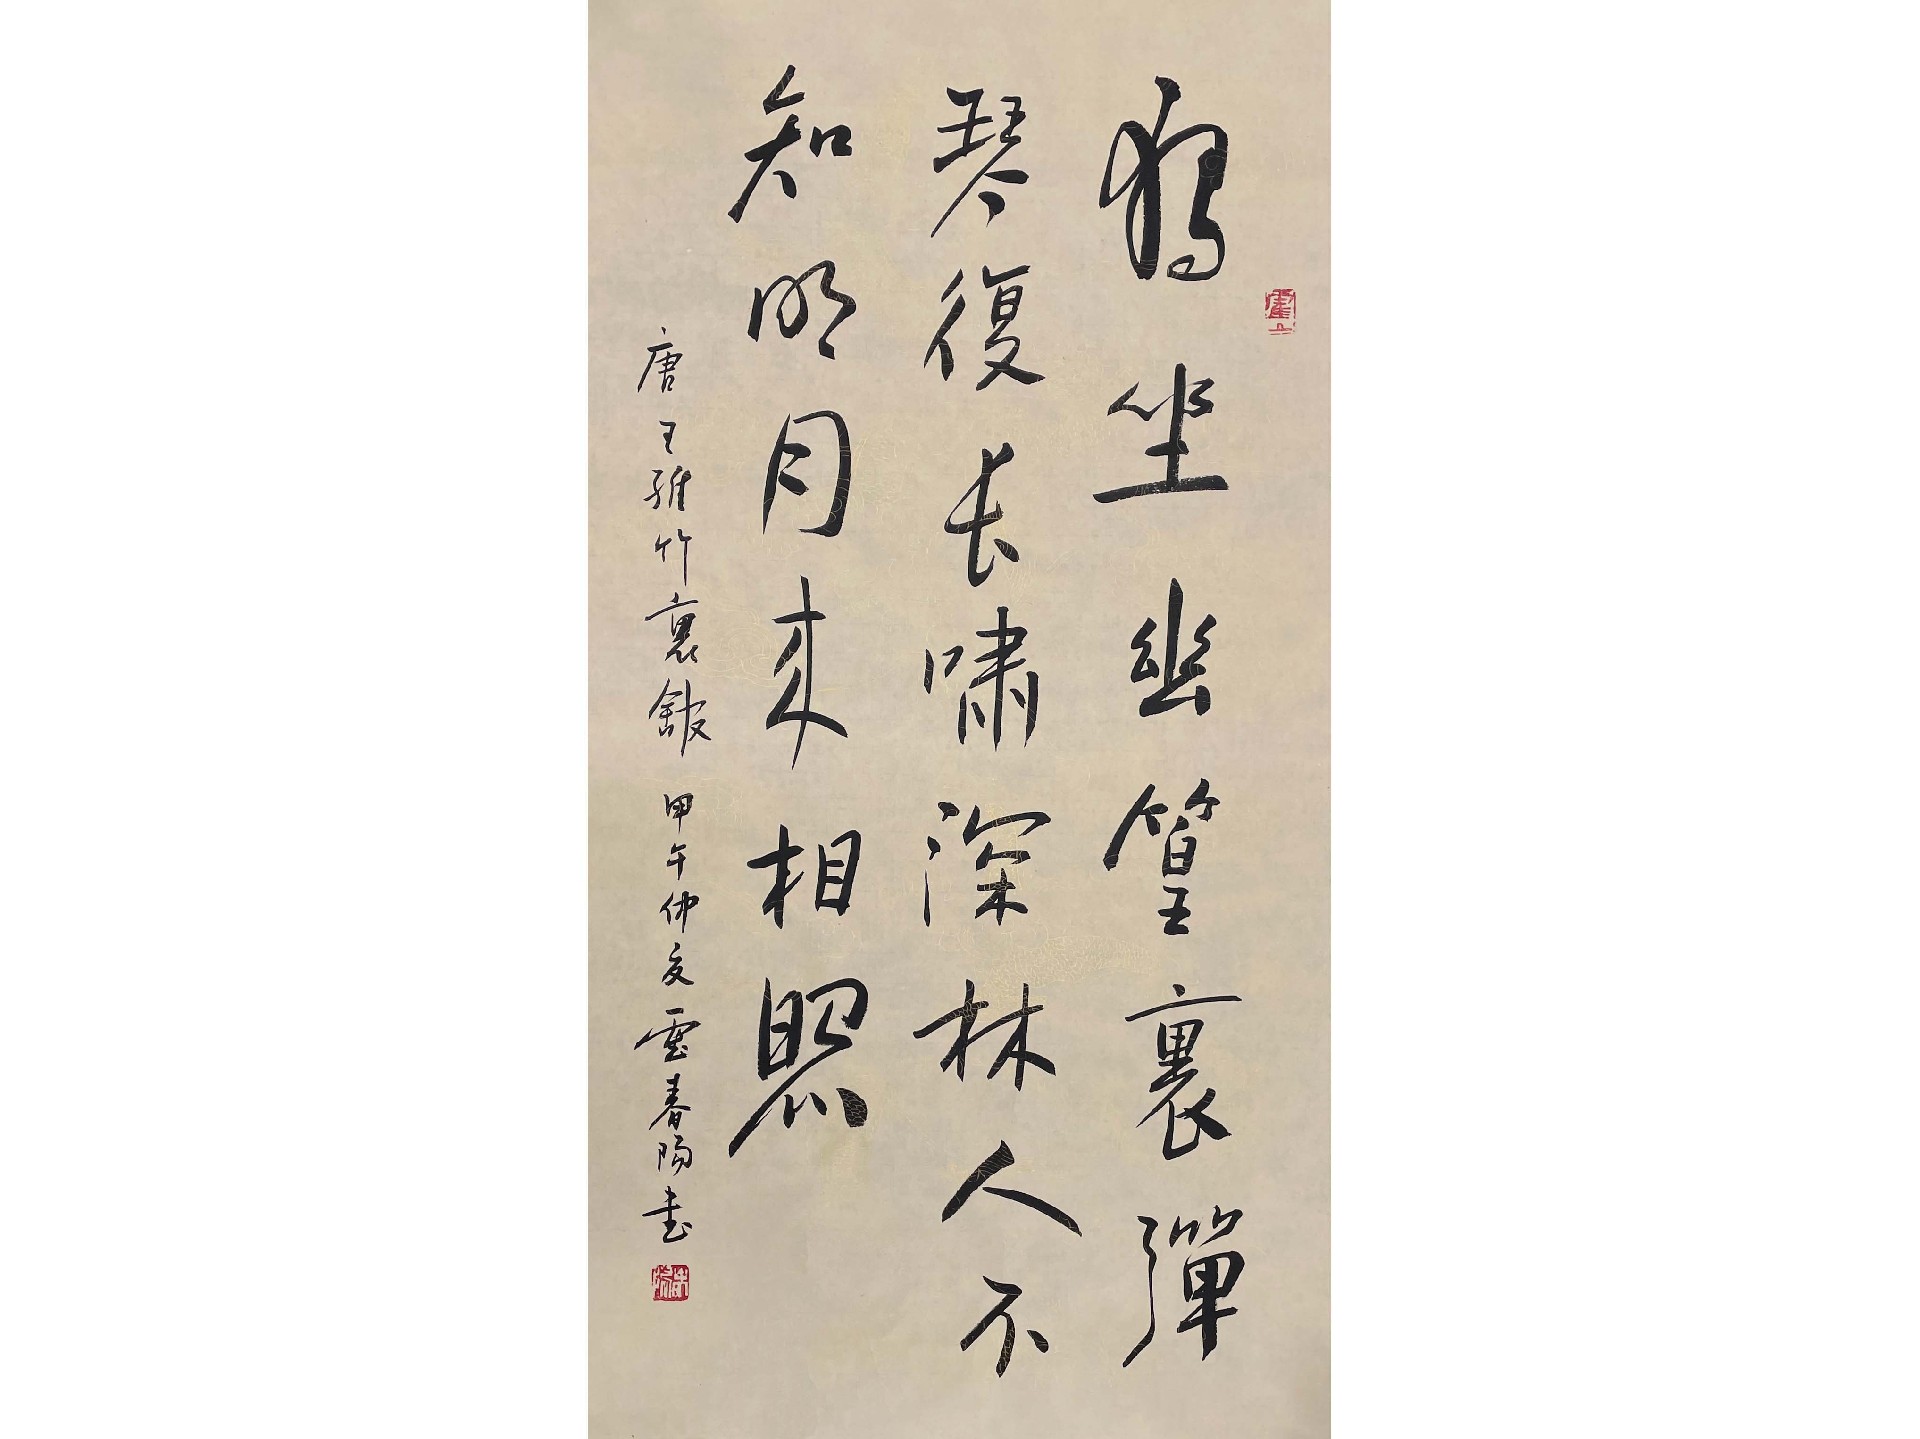 獨坐幽篁裏彈
琴復長嘯深林人不
知明月来相照
唐王維竹裏館 甲午仲夏 春陽書